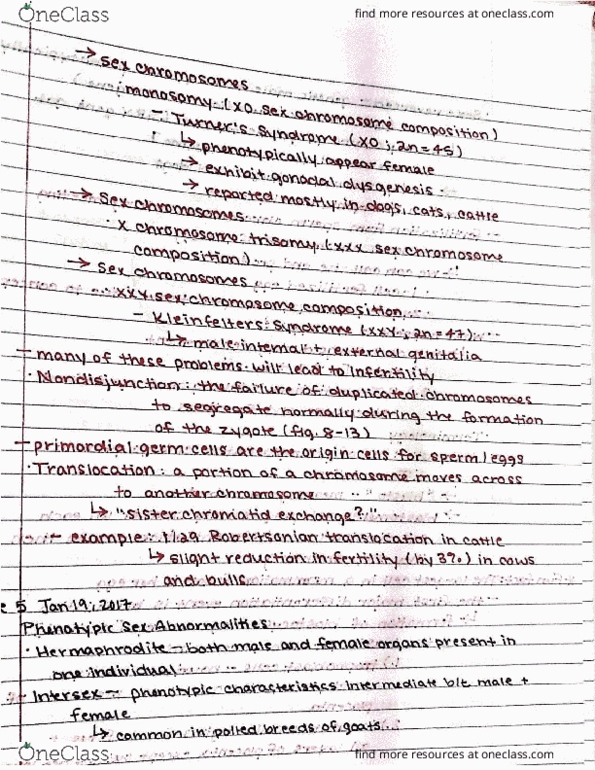 OneClass
find more resources at oneclass.com
→ Sex chromosomes
· monosomy (XO sex chromosome composition)
- Turner's Syndrome (XO ; 2n=45)
↳ phenotypically appear female
→ exhibit gonadal dysgenesis
→ reported mostly in dogs, cats, cattle
→ Sex chromosomes
· X chromosome trisomy (XXX sex chromosome
composition)
→ Sex chromosomes
· XXY sex chromosome composition
- Kleinfelters Syndrome (XXY ; 2n=47)
↳ male internal + external genitalia
- many of these problems will lead to infertility
· Nondisjunction : the failure of duplicated chromosomes
to segregate normally during the formation
of the zygote (fig. 8-13)
- primordial germ cells are the origin cells for sperm/eggs
· Translocation : a portion of a chromosome moves across
to another chromosome
↳ "sister chromatid exchange?"
- example : 1:29 Robertsonian translocation in cattle
↳ slight reduction in fertility (by 3%) in cows
and bulls
5 Jan 19, 2017
Phenotypic Sex Abnormalities
· Hermaphrodite - both male and female organs present in
one individual
- Intersex - phenotypic characteristics intermediate b/t male +
female
↳ common in polled breeds of goats
OneClass
find more resources at oneclass.com